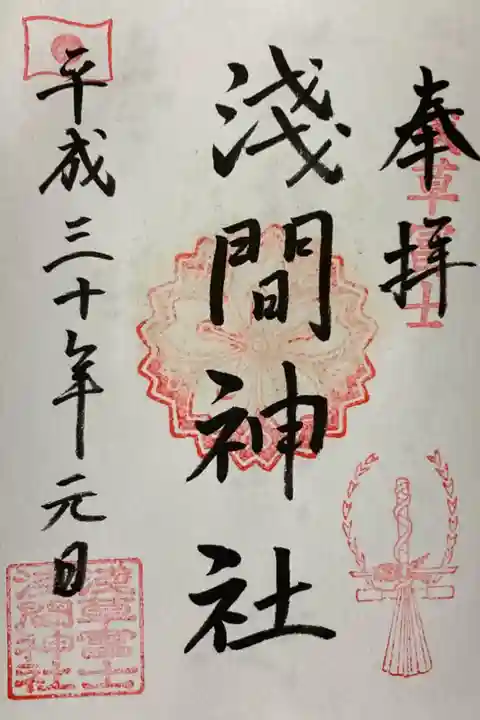 奉拝
浅草富士
淺間神社
平成三十年元旦
淺草富士
淺間神社